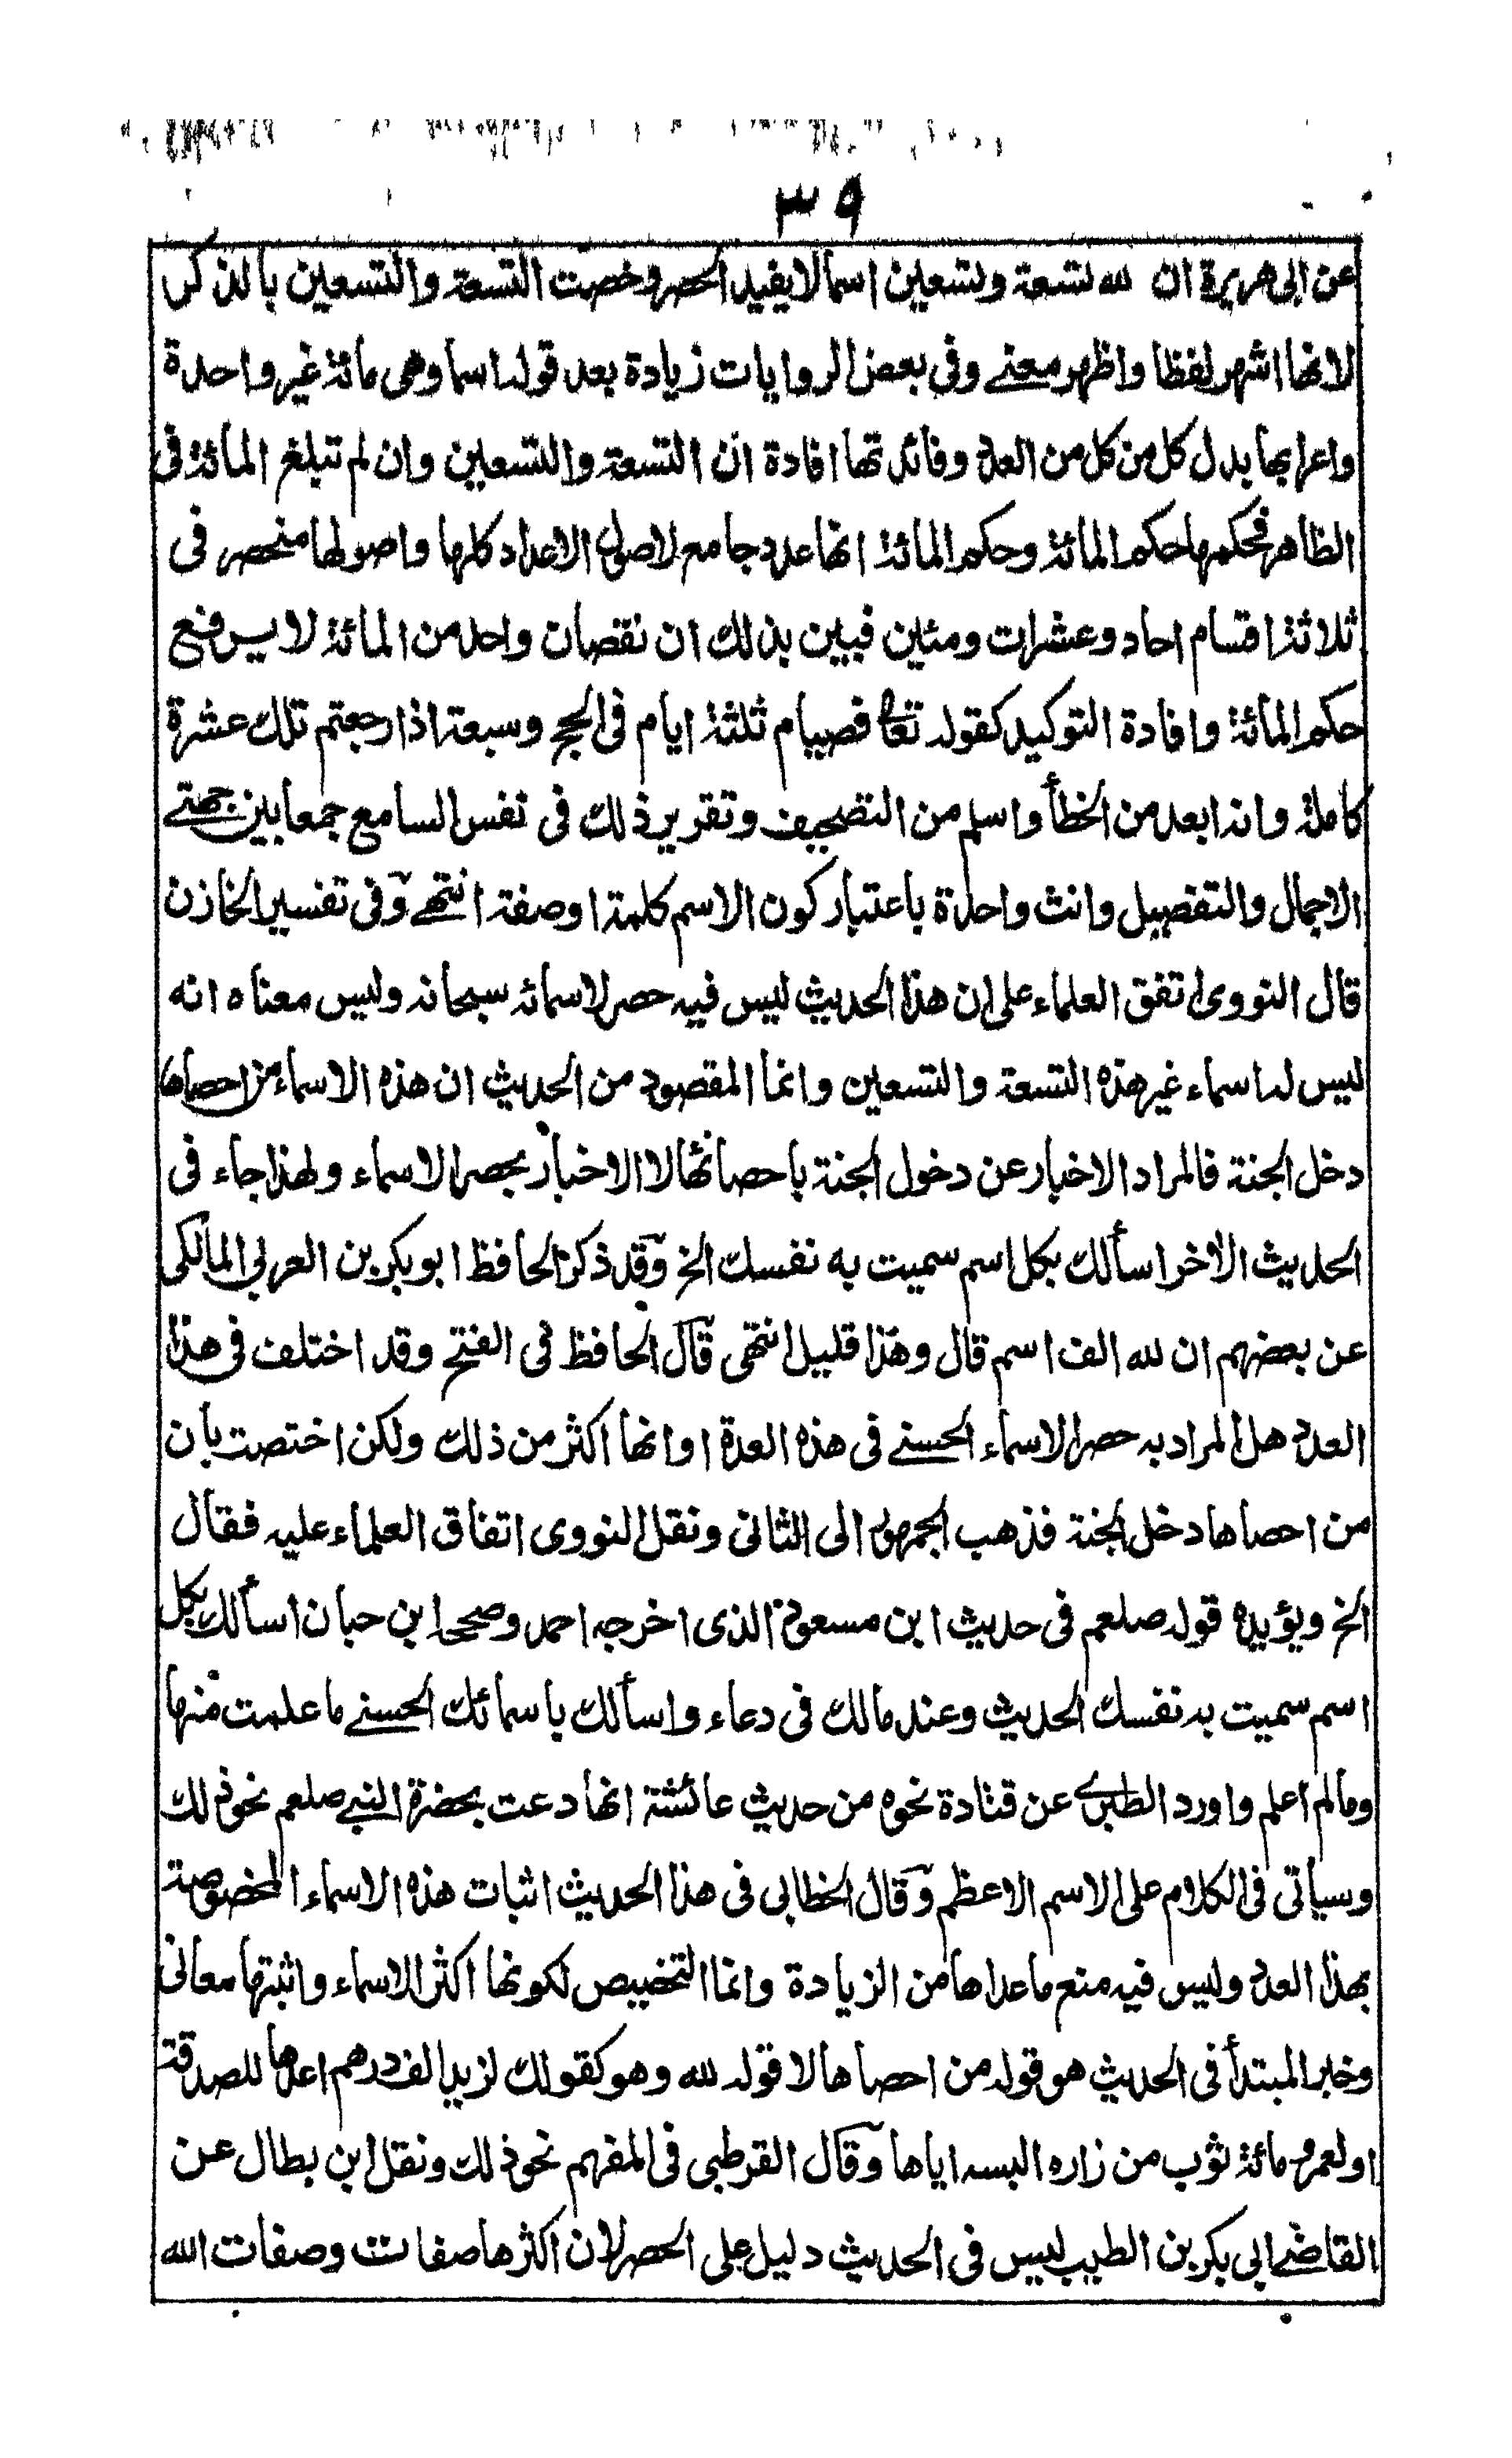 ٣٩
عن ابى هريرة ان لله تسعة وتسعين اسما لا يفيد الحصر وخصت التسعة والتسعين بالذكر
لانها اشهر لفظا واظهر معنے وفى بعض الروايات زيادة بعد قوله اسما وهى مائة غير واحدة
واعرابها بدل كل من كل من العدد وفائدتها افادة ان التسعة والتسعين وان لم تبلغ المائة فى
الظاهر فحكمها حكم المائة وحكم المائة انها عدد جامع لاصول الاعداد كلها واصولها منحصر فى
ثلاثة اقسام احاد وعشرات ومئين فبين بذلك ان نقصان واحد من المائة لا يرفع
حكم المائة وافادة التوكيد كقوله تعا فصيام ثلثة ايام فى الحج وسبعة اذا رجعتم تلك عشرة
كاملة وانه ابعد من الخطأ واسلم من التصحيف وتقرير ذلك فى نفس السامع جمعا بين جهتے
الاجمال والتفصيل وانث واحدة باعتبار كون الاسم كلمة اوصفة انتهے وفى تفسير الخازن
قال النووى اتفق العلماء على ان هذا الحديث ليس فيه حصر لاسمائه سبحانه وليس معناه انه
ليس له اسماء غير هذه التسعة والتسعين وانما المقصود من الحديث ان هذه الاسماء من احصاها
دخل الجنة فالمراد الاخبار عن دخول الجنة باحصائها لا الاخبار بحصر الاسماء ولهذا جاء فى
الحديث الأخر اسألك بكل اسم سميت به نفسك الخ وقد ذكر الحافظ ابو بكر بن العربي المالكى
عن بعضهم ان لله الف اسم قال وهذا قليل انتهى قال الحافظ فى الفتح وقد اختلف فى هذا
العدد هل المراد به حصر الاسماء الحسنے فى هذه العدة او انها اكثر من ذلك ولكن اختصت بان
من احصاها دخل الجنة فذهب الجمهور الى الثانى ونقل النووى اتفاق العلماء عليه فقال
الخ ويؤيده قوله صلعم فى حديث ابن مسعود الذى اخرجه احمد وصححه ابن حبان اسألك بكل
اسم سميت به نفسك الحديث وعند مالك فى دعاء واسألك باسمائك الحسنے ما علمت منها
ومالم اعلم واورد الطبرے عن قتادة نحوه من حديث عائشة انها دعت بحضرة النبے صلعم نحو ذلك
وسيأتى فى الكلام على الاسم الاعظم وقال الخطابى فى هذا الحديث اثبات هذه الاسماء المخصوصة
بهذا العدد وليس فيه منع ما عداها من الزيادة وانما التخصيص لكونها اكثر الاسماء واثبتها معانى
وخبر المبتدأ فى الحديث هو قوله من احصاها لا قوله لله وهو كقولك لزيد الف درهم اعدها للصدقة
او لعمرو مائة ثوب من زاره البسه اياها وقال القرطبى فى المفهم نحو ذلك ونقل ابن بطال عن
القاضے ابى بكر بن الطيب ليس فى الحديث دليل على الحصر لان اكثرها صفات وصفات الله